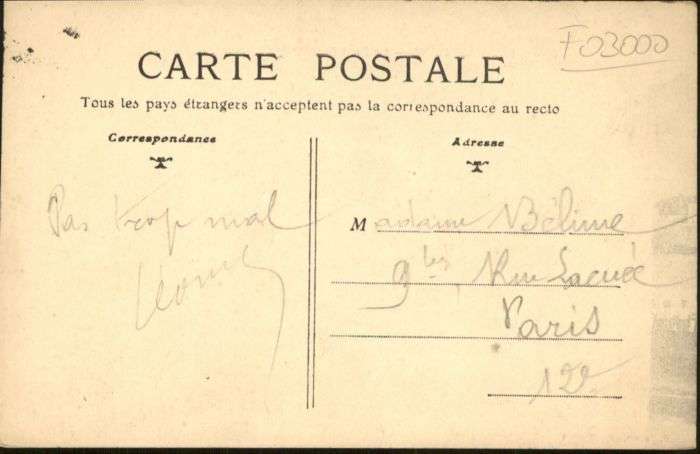 F03000
CARTE POSTALE
Tous les pays étrangers n'acceptent pas la correspondance au recto
Correspondance
Adresse
Pas trop mal
Madame Bélime
9 bis, Rue Lacuée
Paris
12e